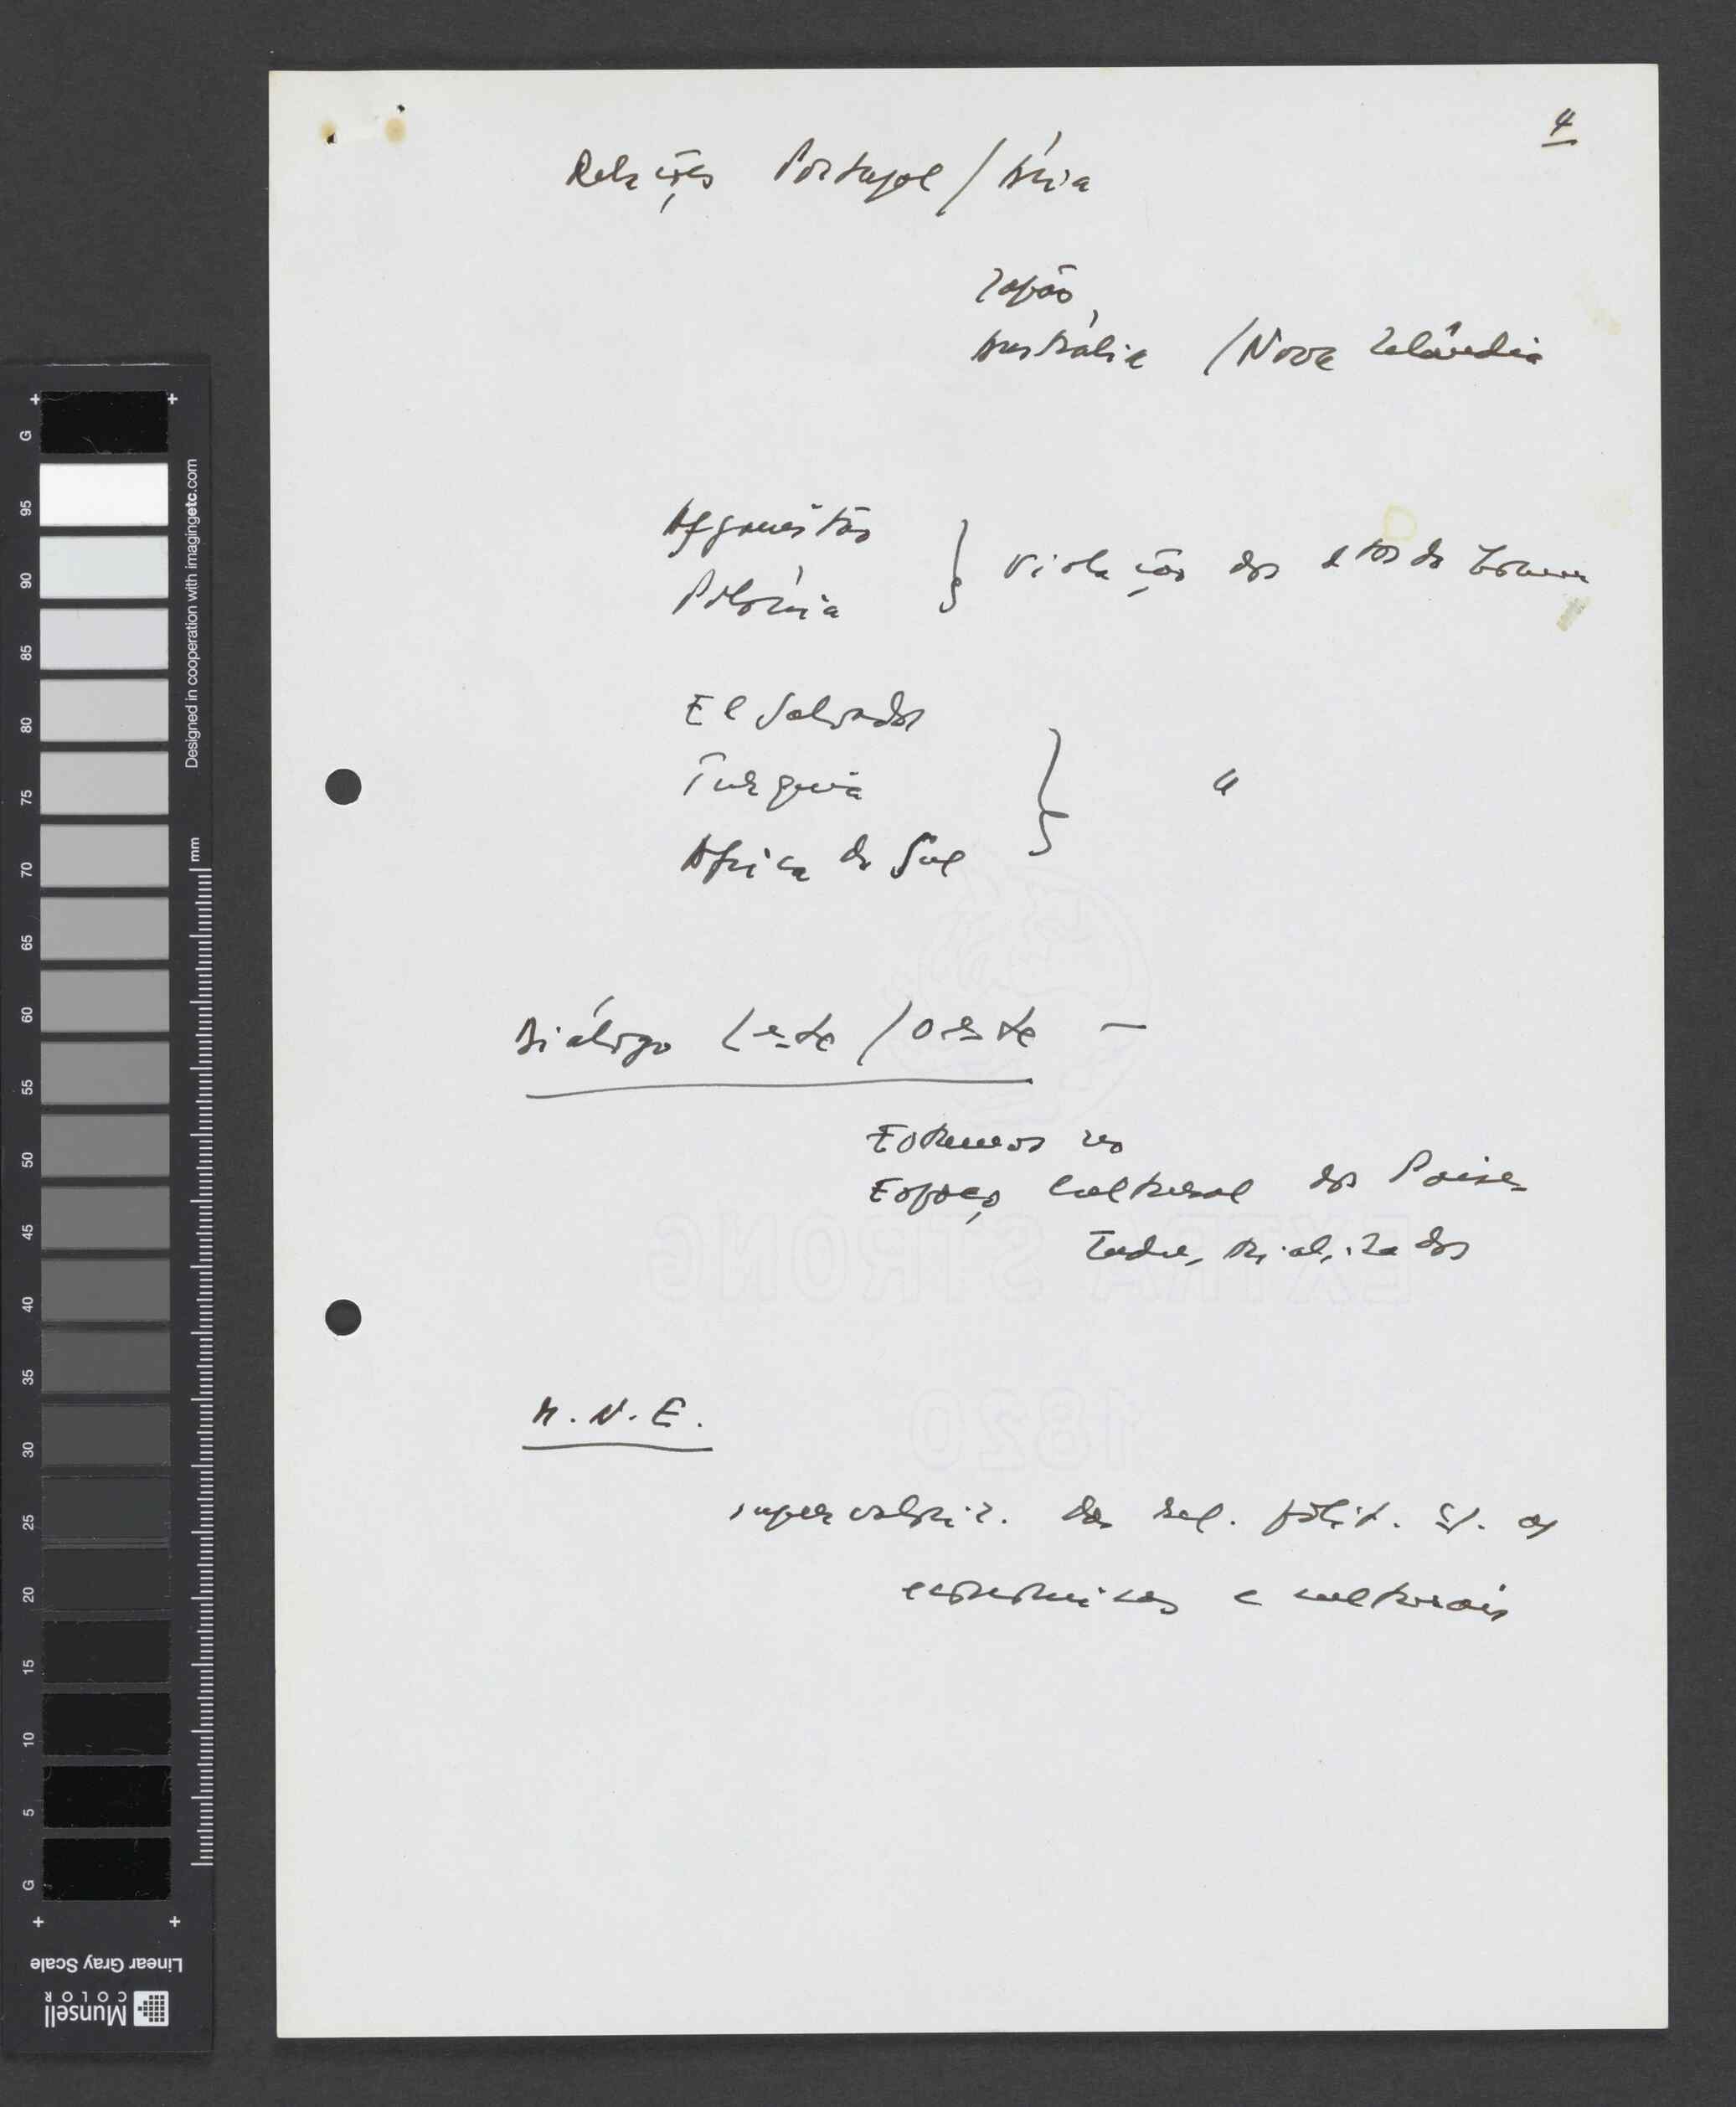 4
Relações Portugal / Ásia
Japão,
Austrália / Nova Zelândia
Afganistão
Polónia } Violação dos dtos do Homem
El Salvador
Turquia } "
Africa do Sul
Diálogo Leste / Oeste —
Estamos no
Espaço Cultural dos Paises
Industrializados
M.N.E.
supervaloriz. das rel. polit. s/. as
economicas e culturais
EXTRA STRONG
1820
G
95
90
85
80
75
70
65
60
55
50
45
40
35
30
25
20
15
10
5
G
mm
Designed in cooperation with imagingetc.com
Linear Gray Scale
Munsell
COLOR